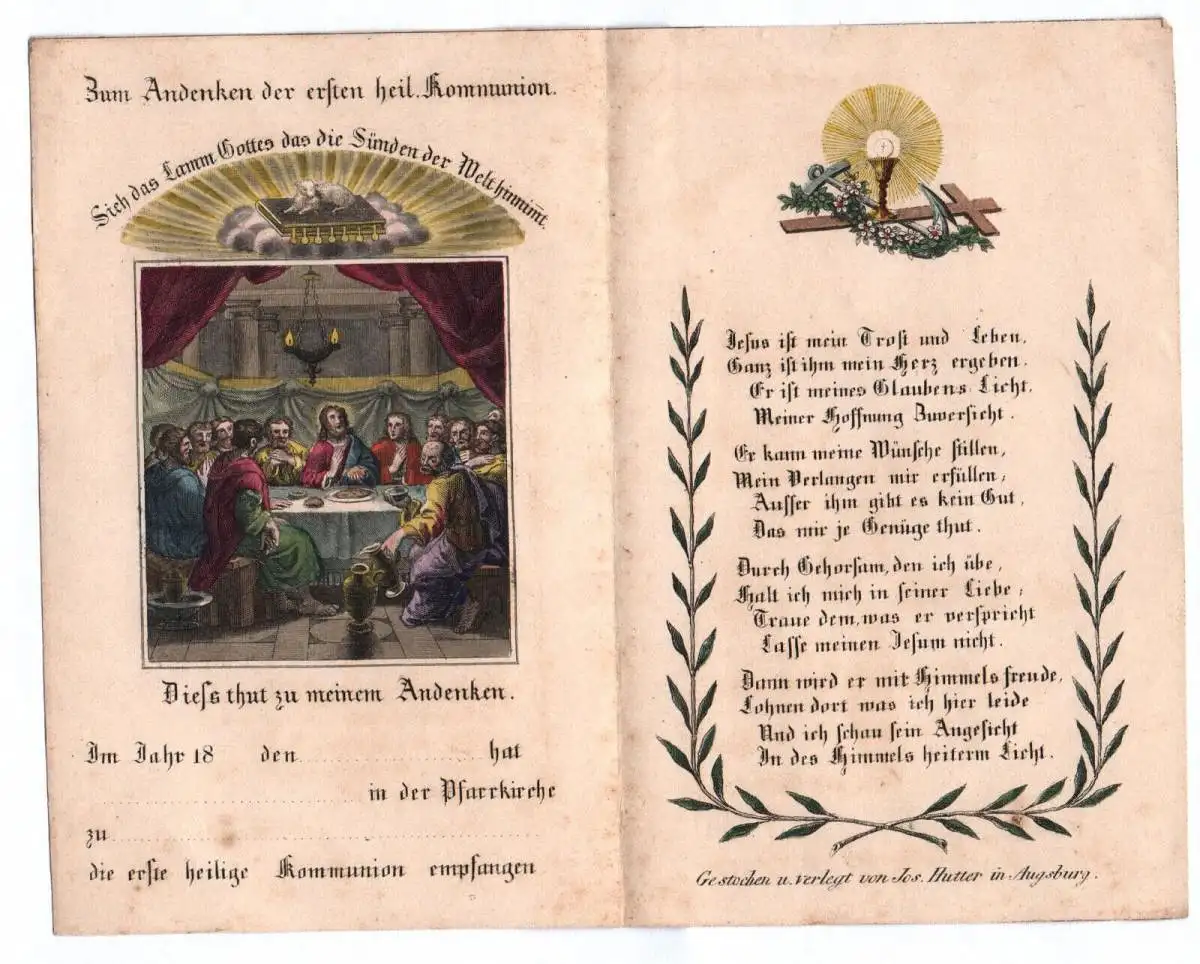 Zum Andenken der ersten heil. Kommunion.
Sieh das Lamm Gottes das die Sünden der Welt hinnim̅t.
Diess thut zu meinem Andenken.
Im Jahr 18 den hat
in der Pfarrkirche
zu
die erste heilige Kommunion empfangen
Jesus ist mein Trost und Leben,
Ganz ist ihm mein Herz ergeben.
Er ist meines Glaubens Licht,
Meiner Hoffnung Zuversicht.
Er kann meine Wünsche stillen,
Mein Verlangen mir erfüllen;
Ausser ihm gibt es kein Gut,
Das mir je Genüge thut.
Durch Gehorsam, den ich übe,
Halt ich mich in seiner Liebe;
Traue dem, was er verspricht
Lasse meinen Jesum nicht.
Dann wird er mit Himmels freude,
Lohnen dort was ich hier leide
Und ich schau sein Angesicht
In des Himmels heiterm Licht.
Gestochen u. verlegt von Jos. Hutter in Augsburg.